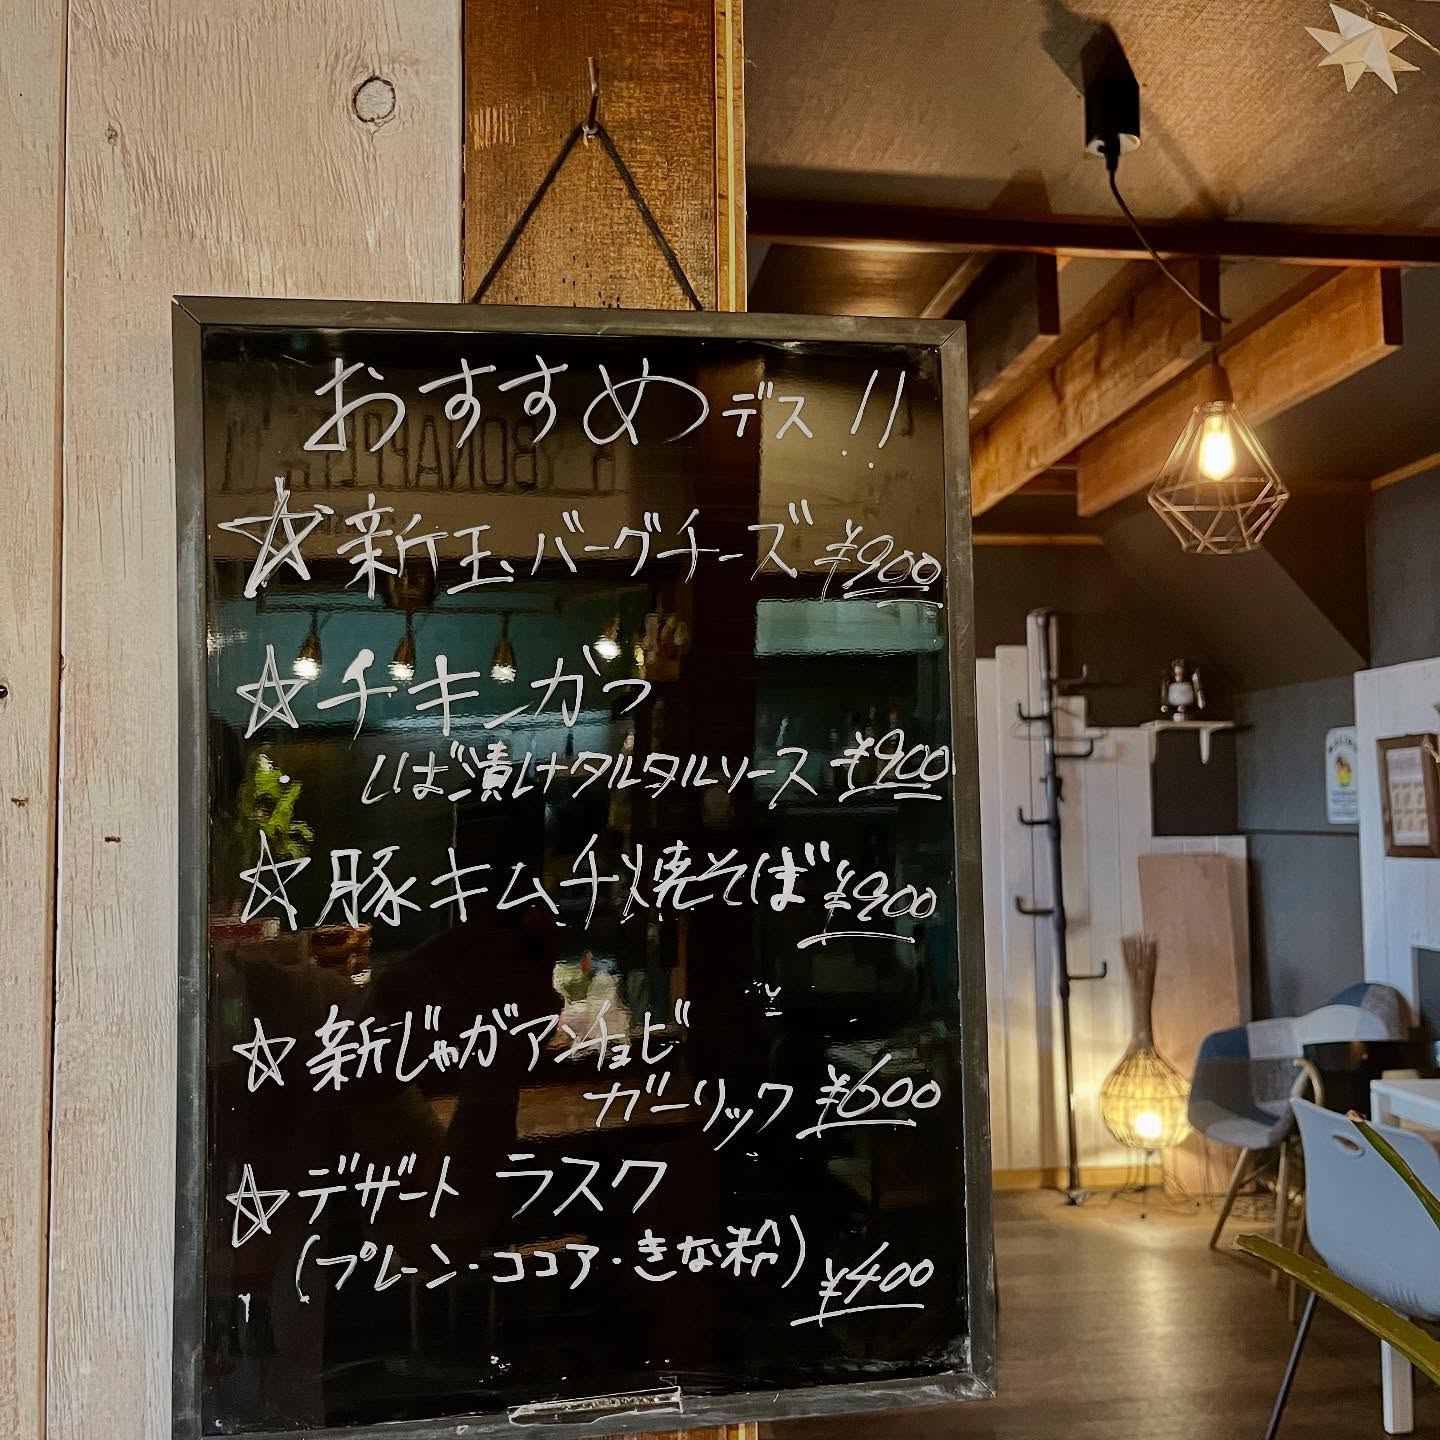 おすすめデス!!
☆新玉バーグチーズ ¥900
☆チキンカツ
しば漬けタルタルソース ¥900
☆豚キムチ焼そば ¥900
☆新じゃがアンチョビ
ガーリック ¥600
☆デザート ラスク
(プレーン・ココア・きな粉)
¥400